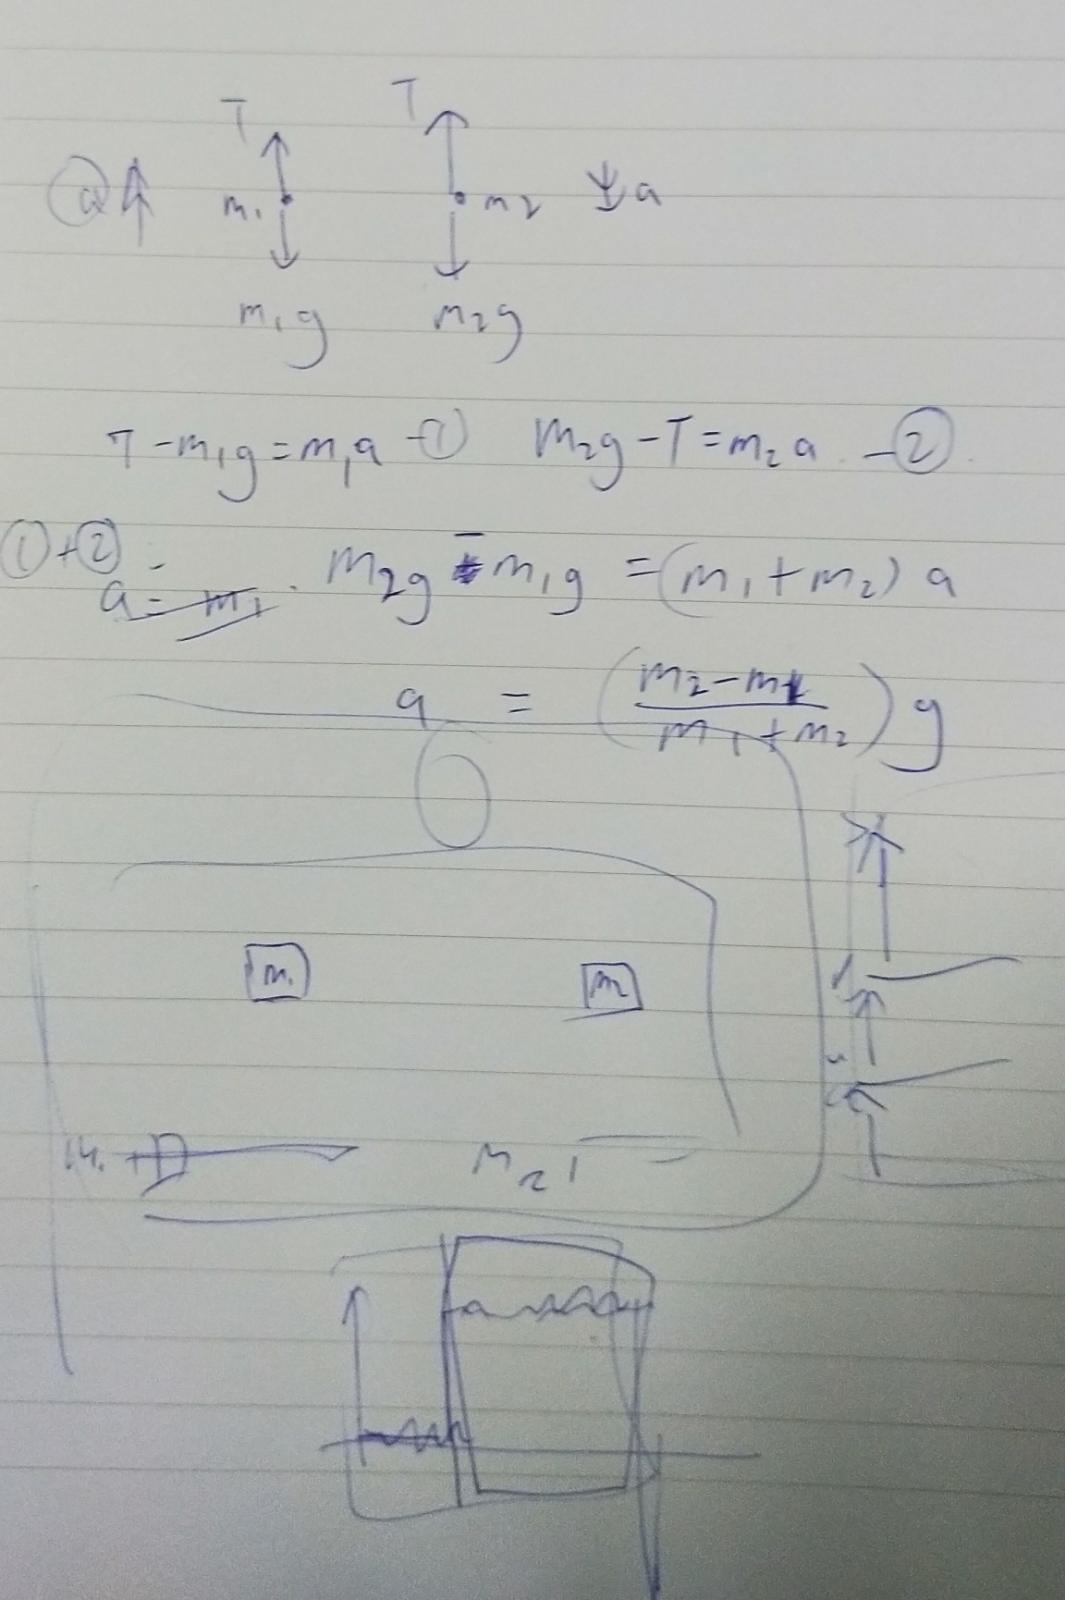 T T
a m₁ m₂ a
m₁g m₂g
T - m₁g = m₁a - ① m₂g - T = m₂a - ②
① + ② :
a = m₁ m₂g - m₁g = (m₁ + m₂) a
a = ( (m₂ - m₁) / (m₁ + m₂) ) g
m₁ m₂